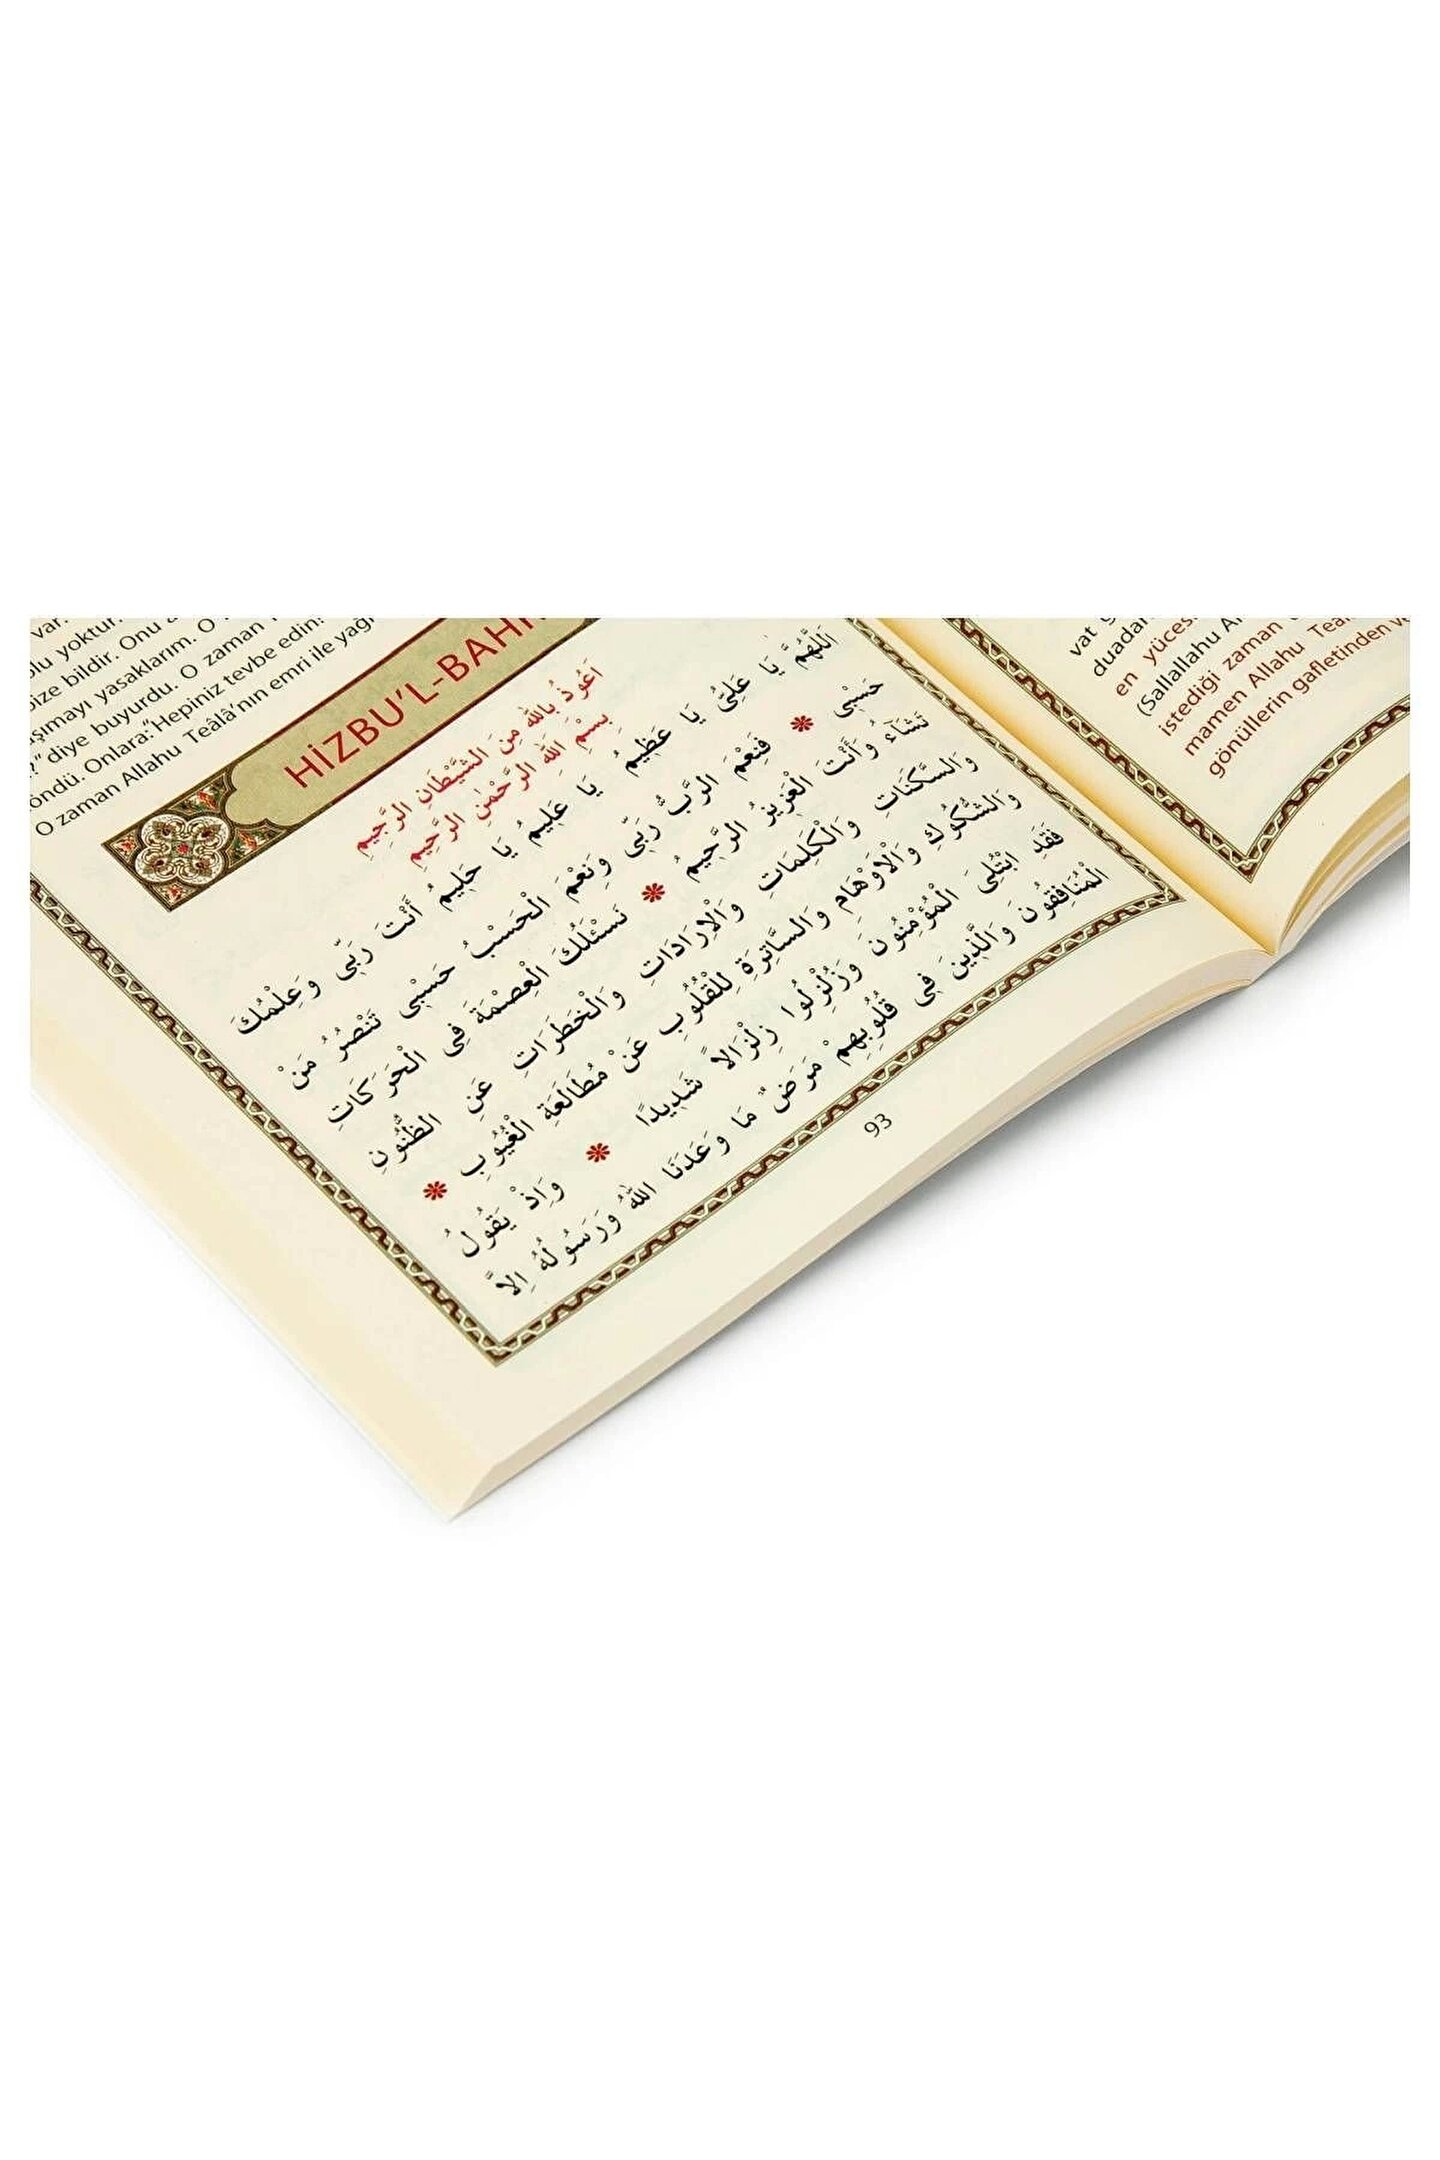 var.
yoktur.
bize bildir. Onu
yasaklarım. O
diye buyurdu. O zaman
Onlara:"Hepiniz tevbe edin!
O zaman Allahu Teâlâ'nın emri ile
HİZBU'L-BAHR
اَعُوذُ بِاللّٰهِ مِنَ الشَّيْطَانِ الرَّجِيمِ
بِسْمِ اللّٰهِ الرَّحْمٰنِ الرَّحِيمِ
اَللّٰهُمَّ يَا عَلِىُّ يَا عَظِيمُ يَا حَلِيمُ يَا عَلِيمُ أَنْتَ رَبِّى وَعِلْمُكَ
حَسْبِى ❋ فَنِعْمَ الرَّبُّ رَبِّى وَنِعْمَ الْحَسْبُ حَسْبِى تَنْصُرُ مَنْ
تَشَاءُ وَأَنْتَ الْعَزِيزُ الرَّحِيمُ ❋ نَسْئَلُكَ الْعِصْمَةَ فِى الْحَرَكَاتِ
وَالسَّكَنَاتِ وَالْكَلِمَاتِ وَالْاِرَادَاتِ وَالْخَطَرَاتِ عَنِ الظُّنُونِ
وَالشُّكُوكِ وَالْاَوْهَامِ وَالسَّاتِرَةِ لِلْقُلُوبِ عَنْ مُطَالَعَةِ الْغُيُوبِ ❋
فَقَدَ ابْتُلِىَ الْمُؤْمِنُونَ وَزُلْزِلُوا زِلْزَالاً شَدِيدًا ❋ وَاِذْ يَقُولُ
الْمُنَافِقُونَ وَالَّذِينَ فِى قُلُوبِهِمْ مَرَضٌ مَا وَعَدَنَا اللّٰهُ وَرَسُولُهُ اِلاَّ
93
vat
duadan
en yüces
(Sallallahu
istediği zaman
mamen Allahu
gönüllerin gafletinden